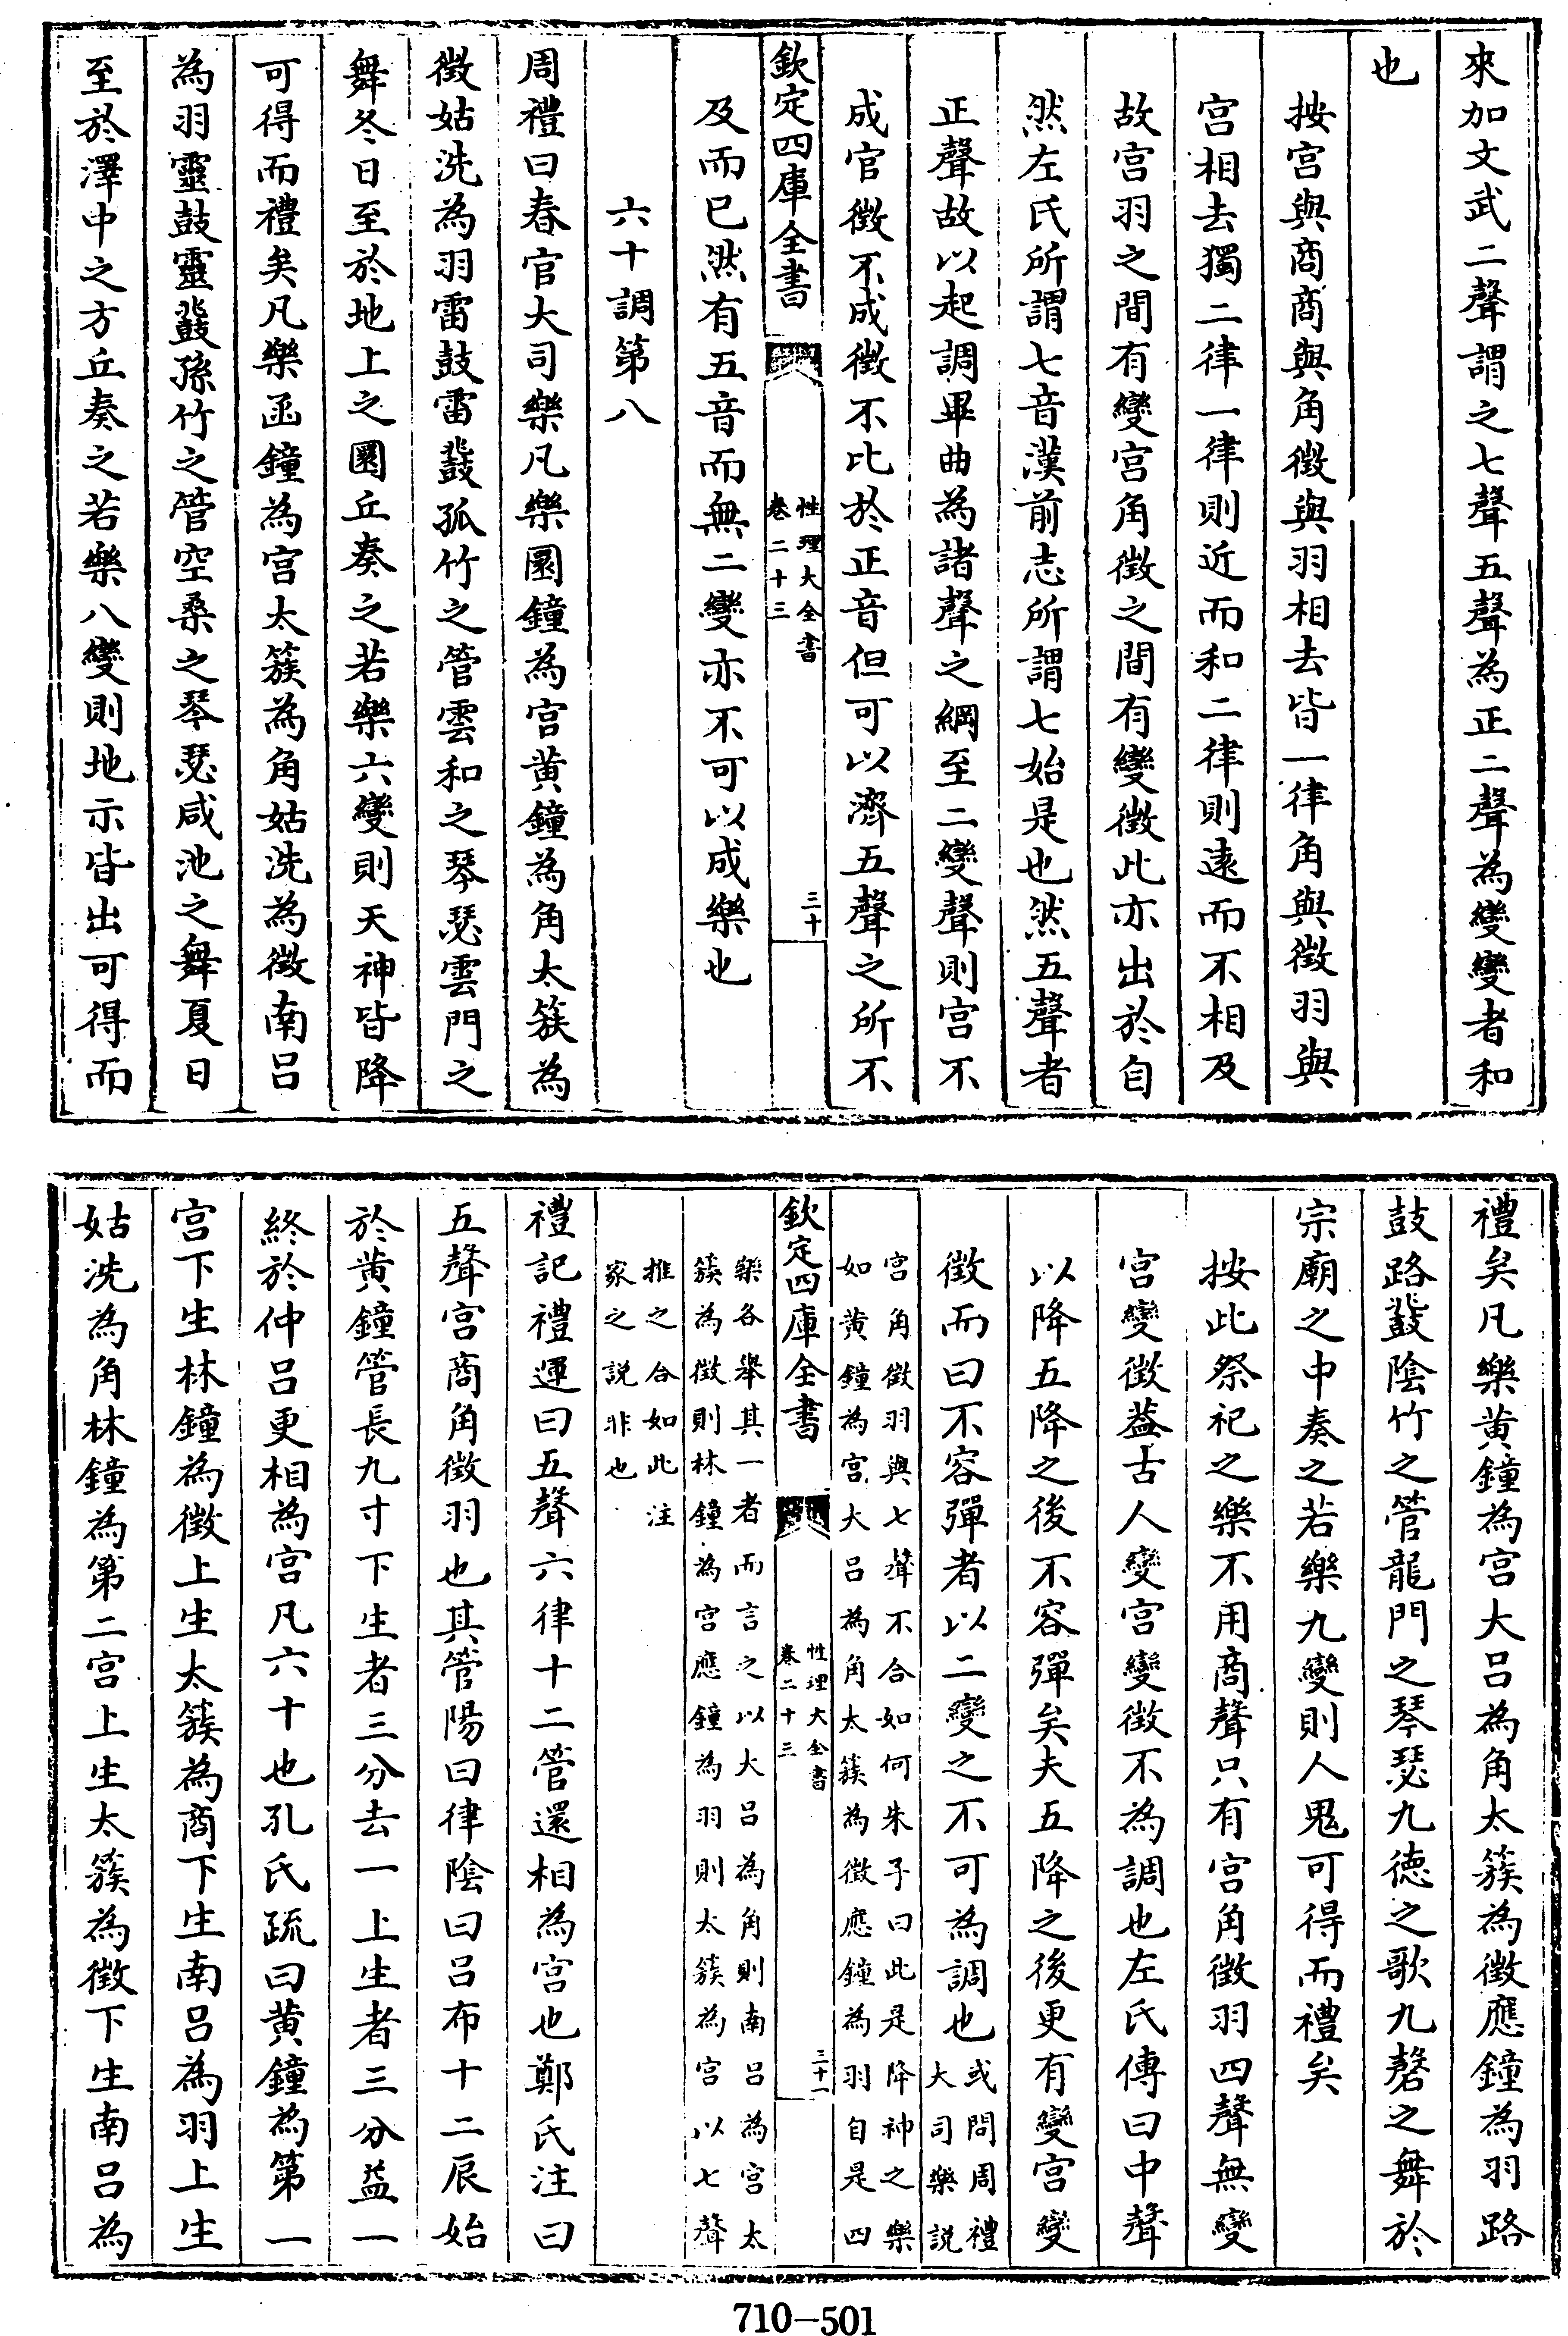 來加文武二聲謂之七聲五聲為正二聲為變變者和
也
按宫與商商與角徵與羽相去皆一律角與徵羽與
宫相去獨二律一律則近而和二律則逺而不相及
故宫羽之間有變宫角徵之間有變徵此亦出於自
然左氏所謂七音漢前志所謂七始是也然五聲者
正聲故以起調畢曲為諸聲之綱至二變聲則宫不
成宫徵不成徵不比於正音但可以濟五聲之所不
欽定四庫全書
性理大全書
卷二十三
三十
及而已然有五音而無二變亦不可以成樂也
六十調第八
周禮曰春官大司樂凡樂圜鐘為宫黄鐘為角太簇為
徵姑洗為羽雷鼓雷鼗孤竹之管雲和之琴瑟雲門之
舞冬日至於地上之圜丘奏之若樂六變則天神皆降
可得而禮矣凡樂函鐘為宫太簇為角姑洗為徵南吕
為羽靈鼓靈鼗孫竹之管空桑之琴瑟咸池之舞夏日
至於澤中之方丘奏之若樂八變則地示皆出可得而
禮矣凡樂黄鐘為宫大吕為角太簇為徵應鐘為羽路
鼓路鼗陰竹之管龍門之琴瑟九徳之歌九磬之舞於
宗廟之中奏之若樂九變則人鬼可得而禮矣
按此祭祀之樂不用商聲只有宫角徵羽四聲無變
宫變徵葢古人變宫變徵不為調也左氏傳曰中聲
以降五降之後不容彈矣夫五降之後更有變宫變
徵而曰不容彈者以二變之不可為調也或問周禮
大司樂説
宫角徵羽與七聲不合如何朱子曰此是降神之樂
如黄鐘為宫大吕為角太簇為徵應鐘為羽自是四
欽定四庫全書
性理大全書
卷二十三
三十一
樂各舉其一者而言之以大吕為角則南吕為宫太
簇為徵則林鐘為宫應鐘為羽則太簇為宫以七聲
推之合如此注
家之説非也
禮記禮運曰五聲六律十二管還相為宫也鄭氏注曰
五聲宫商角徵羽也其管陽曰律陰曰吕布十二辰始
於黄鐘管長九寸下生者三分去一上生者三分益一
終於仲吕更相為宫凡六十也孔氏疏曰黄鐘為第一
宫下生林鐘為徵上生太簇為商下生南吕為羽上生
姑洗為角林鐘為第二宫上生太簇為徵下生南吕為
710-501